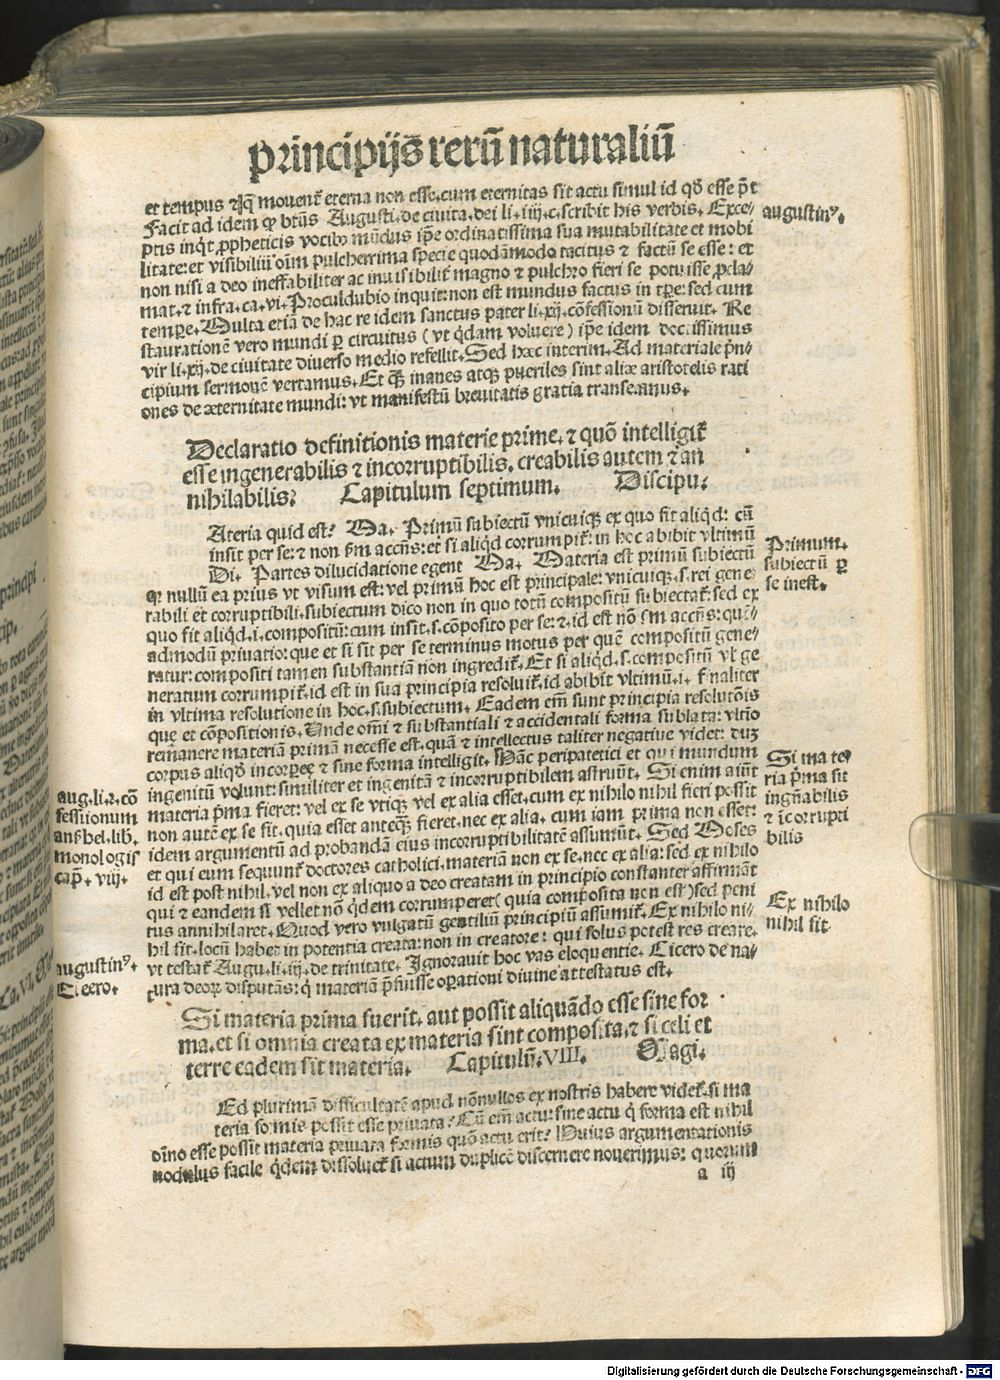 principijs̄ rerū naturaliū
et tempus itaq̄ mouent̄ eterna non esse. cum eternitas sit actu simul id qd̄ esse pōt
Facit ad idem qꝫ btūs Augusti. de ciuita. dei li. iiij. c. scribit his verbis. Exce-
ptis inqt ꝓpheticis vocibꝫ mūdus ipse ordinatissima sua mutabilitate et mobi
litate: et visibiliū oīm pulcherrima specie quodāmodo tacitus ⁊ factū se esse: et
non nisi a deo ineffabiliter ac inuisibilit̄ magno ⁊ pulchro fieri se potuisse ꝓcla-
mat. ⁊ infra. ca. vi. Proculdubio inquit: non est mundus factus in tꝑe: sed cum
tempore. Multa etiā de hac re idem sanctus pater li. xij. cōfessionū disseruit. Re
staurationē vero mundi ꝑ circuitus (vt qdam voluere) ip̄e idem doctissimus
vir li. xij. de ciuitate diuerso medio refellit. Sed hæc interim. Ad materiale pn̄-
cipium sermonē vertamus. Et qꝙ inanes atqꝫ pueriles sint aliæ aristotelis rati
ones de æternitate mundi: vt manifestū breuitatis gratia transeamus.
augustinꝰ.
Declaratio definitionis materie prime. ⁊ quō intelligit̄
esse ingenerabilis ⁊ incorruptibilis. creabilis autem ⁊ an
nihilabilis? Capitulum septimum. Discipu.
Ateria quid est? Ma. Primū subiectū vnicuiqꝫ ex quo fit aliqd: cū
insit per se: ⁊ non ẜm accn̄s: et si aliqd corrumpit̄: in hoc abibit vltimū
Di. Partes dilucidatione egent Ma. Materia est primū subiectū
qꝫ nullū ea prius vt visum est: vel primū hoc est principale: vnicuiqꝫ. s. rei gene-
rabili et corruptibili. subiectum dico non in quo totū compositū subiectat̄: sed ex
quo fit aliqd. i. compositū: cum insit. s. cōposito per se: ⁊ id est nō ẜm accn̄s: quē-
admodū priuatio: que et si sit per se terminus motus per quē compositū gene-
ratur: compositi tamen substantiā non ingredit̄. Et si aliqd. s. compositū vꝉ ge
neratum corrumpit̄. id est in sua principia resoluit̄. id abibit vltimū. i. finaliter
in vltima resolutione in hoc. s. subiectum. Eadem em̄ sunt principia resolutōis
que et cōpositionis. Unde om̄i ⁊ substantiali ⁊ accidentali forma sublata: vltio
remanere materiā primā necesse est. quā ⁊ intellectus taliter negatiue videt: dū
corpus aliqd incorꝑeū ⁊ sine forma intelligit. Hāc peripatetici et qui mundum
ingenitū volunt: similiter et ingenitā ⁊ incorruptibilem astruūt. Si enim aiūt
materia pꝛma fieret: vel ex se vtiqꝫ vel ex alia esset. cum ex nihilo nihil fieri possit
non autē ex se fit. quia esset anteqꝙ fieret. nec ex alia. cum iam prima non esset:
idem argumentū ad probandā eius incorruptibilitatē assumūt. Sed Moses
et qui eum sequunt̄ doctores catholici. materiā non ex se. nec ex alia: sed ex nihilo
id est post nihil. vel non ex aliquo a deo creatam in principio constanter affirmāt
qui ⁊ eandem si vellet nō qdem corrumperet (quia composita non est) sed peni
tus annihilaret. Quod vero vulgatū gentiliū principiū assumit̄. Ex nihilo ni-
hil fit. locū habet in potentia creata: non in creatore: qui solus potest res creare.
vt testat̄ Augu. li. iij. de trinitate. Ignorauit hoc vas eloquentie. Cicero de na-
tura deoꝝ disputās: q materiā p̄fuisse oꝑationi diuine attestatus est.
Primum
subiectū ꝑ
se inest.
Si mate
ria pꝛma sit
ingn̄abilis
⁊ īcorrupti
bilis
Ex nihilo
nihil fit
aug. li. 2. cō
fessionum
anshel. lib.
monologij
cap̄. viij.
augustinꝰ.
Cicero.
Si materia prima fuerit. aut possit aliquādo esse sine for
ma. et si omnia creata ex materia sint composita. ⁊ si celi et
terre eadem sit materia. Capitulū. VIII. Magi.
Ed plurimā difficultatē apud nōnullos ex nostris habere videt̄. si ma
teria formis possit esse priuata? Cū em̄ actu: sine actu q forma est nihil
oīno esse possit materia priuata formis quō actu erit? Huius argumentationis
nodulus facile qdem dissoluet̄ si actum duplicē discernere nouerimus: quorum
a iij
Digitalisierung gefördert durch die Deutsche Forschungsgemeinschaft - DFG